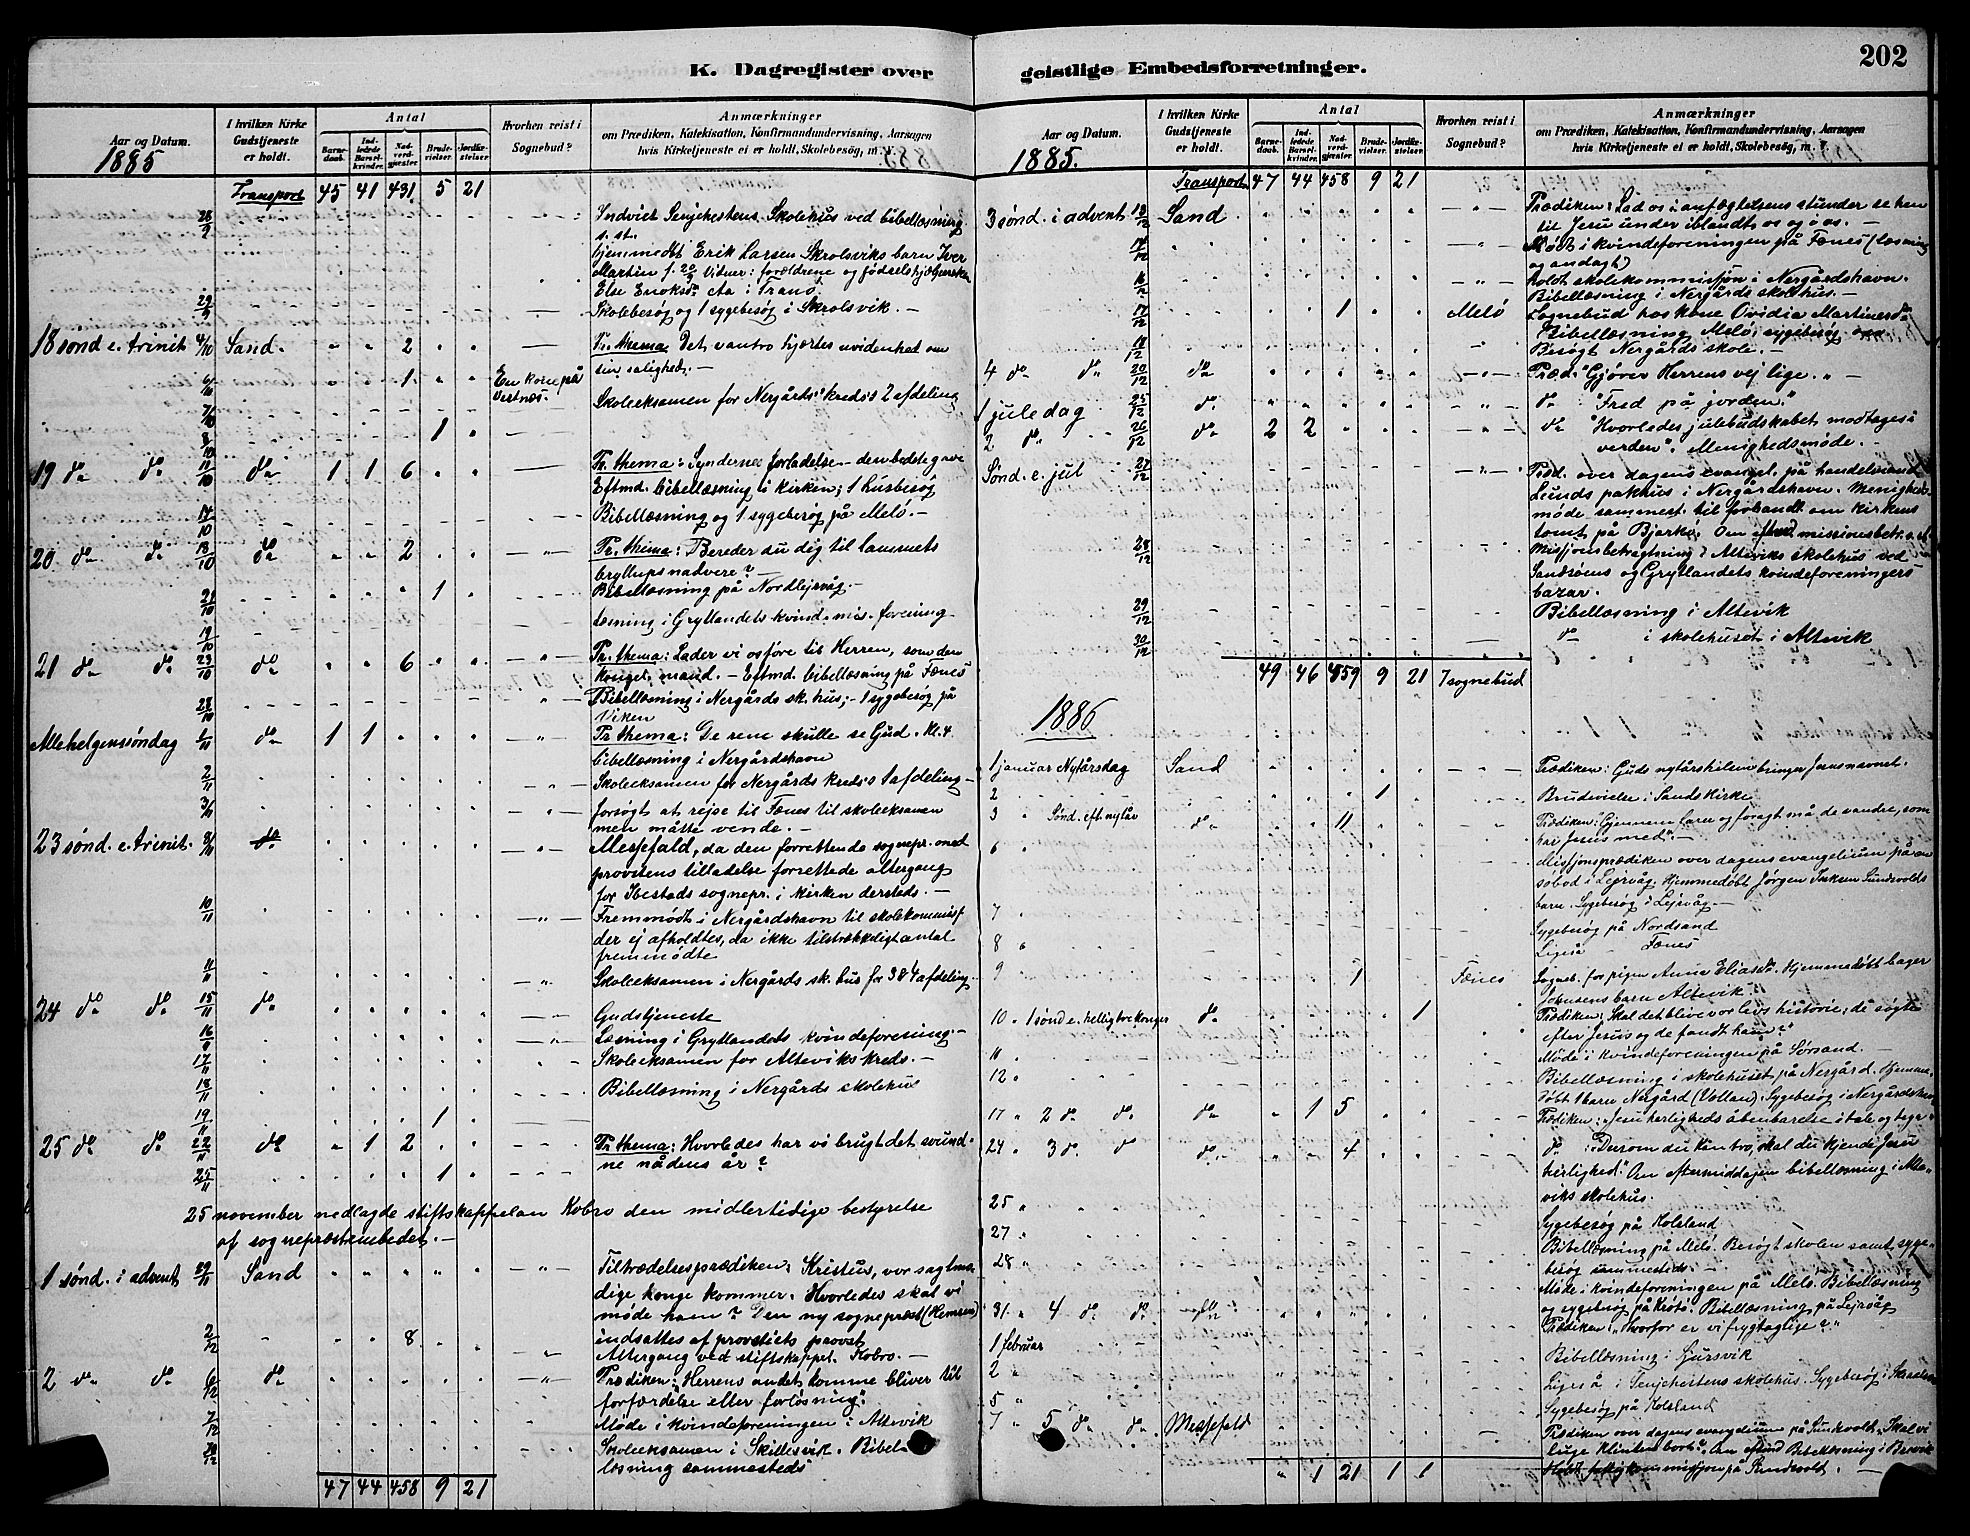 202
K. Dagregister over
geistlige Embedsforretninger.
Aar og Datum.
1885
I hvilken Kirke Gudstjeneste er holdt.
Antal
Barnedaab.
Indledede Barselkvinder.
Nadverdgjester
Brudevielser.
Jordfæstelser
Hvorhen reist i Sognebud?
Anmærkninger
om Prædiken, Katekisation, Konfirmandundervisning, Aarsagen
hvis Kirketjeneste ei er holdt, Skolebesøg, m. v.
Transport 45 41 431 5 21
28/9 Indviet Senjehestens Skolehus ved bibellæsning
s. st.
hjemmedøbt Erik Larsen Skrolsviks barn Iver
Martin f. 20/9 Vidner: forældrene og fødselshjælpersken
Else Eriksd. Aa i Tranø.
29/9 Skolebesøg og 1 sygebesøg i Skrolsvik. —
18 sønd e. trinit 4/10 Sand. 2 Pr. thema Det vantro hjertes uvidenhed om
sin salighed. —
6/10 1 En kone på Vestnes.
7/10 Skoleeksamen for Nergårds kreds's 2 afdeling
8/10 1
19 do do 11/10 do 1 1 6 Pr. thema: Syndernes forladelse – den bedste gave
Eftmd. bibellæsning i kirken; 1 husbesøg
14/10 Bibellæsning og 1 sygebesøg på Melø. —
20 do do 18/10 do 2 Pr. thema: Bereder du dig til lammets
bryllupsnadvere? —
21/10 1 Bibellæsning på Nordlejrvåg. —
19/10 Læsning i Gryllandets kvind. mis. forening
21 do do 23/10 do 6 Pr. thema: Lader vi os føre til Herren, som den
konget. mand. — Eftmd. bibellæsning på Fænes
28/10 Bibellæsning i Nergårds sk. hus; – 1 sygebesøg på
Viken
Allehelgenssøndag 1/11 do 1 1 Pr thema: De rene skulle se Gud. Kl. 4
bibellæsning i Nergårdshavn
2/11 Skoleeksamen for Nergårds kreds's 1 afdeling —
3/11 forsøgt at rejse til Fænes til skoleeksamen
men måtte vende. —
23 sønd. e. trinit. 8/11 do Messefald, da den forrettende sognepr. med
provstens tilladelse forrettede altergang
for Ibestads sognepr. i kirken dersteds. —
10/11 Fremmødt i Nergårdshavn til skolekommiss
der ej afholdtes, da ikke tilstrækkeligt antal
fremmødte
11/11 Skoleeksamen i Nergårds sk. hus for 3 & 4 afdeling.
24 do do 15/11 do Gudstjeneste
16/11 Læsning i Gryllandets kvindeforening. —
17/11 Skoleeksamen for Alteviks kreds. —
18/11 Bibellæsning i Nergårds skolehus
19/11 1
25 do do 22/11 do 1 2 Pr. thema: Hvorledes har vi brugt det svund-
ne nådens år?
25/11 1
25 november nedlagde stiftskappelan Kobro den midlertidige bestyrelse
af sognepræstembedet. —
1 sønd. i advent 29/11 Sand Tiltrædelsesprædiken: Kristus, vor sagtmo-
dige konge kommer. Hvorledes skal vi
møde ham? Den ny sognepræst (Hemsen)
indsattes af provstiets provst
2/12 8 Altergang ved stiftskappel. Kobro. —
2 do do 6/12 do Prædiken: "Herrens andet komme bliver til
forfærdelse eller forløsning".
7/12 Møde i kvindeforeningen i Altevik
Skoleeksamen i Skillesvik. Bibel-
læsning sammesteds
47 44 458 9 21
Aar og Datum.
1885.
I hvilken Kirke Gudstjeneste er holdt.
Antal
Barnedaab.
Indledede Barselkvinder.
Nadverdgjester
Brudevielser.
Jordfæstelser.
Hvorhen reist i Sognebud?
Anmærkninger
om Prædiken, Katekisation, Konfirmandundervisning, Aarsagen
hvis Kirketjeneste ei er holdt, Skolebesøg, m. v.
Transport 47 44 458 9 21
3 sønd. i advent 13/12 Sand Prædiken: Lad os i anfægtelsens stunder se hen
til Jesu under iblandt os og i os. —
14/12 Mødt i kvindeforeningen på Fænes (læsning
og andagt)
16/12 holdt skolekommissjon i Nergårdshavn.
Bibellæsning i Nergårds skolehus. —
17/12 1 Melø Sognebud hos kone Ovidia Martinesd.
Bibellæsning Melø; sygebesøg
18/12 Besøgt Nergårds skole. —
4 do do 20/12 do Præd. "Gjører Herrens vej lige." —
1 juledag 25/12 do do "Fred på jorden."
2 do 26/12 do 2 2 do "Hvorledes julebudskabet modtages i
verden". Menighedsmøde. —
Sønd. e. jul 27/12 Præd. over dagens evangel. på handelsmand
Lunds pakhus i Nergårdshavn. Menigheds-
møde sammest. til forhandl. om kirkens
tomt på Bjarkø. Om missionsbetr.
28/12 Missjonsbetragtning i Alteviks skolehus ved
Sandsøens og Gryllandets kvindeforeningers
bazar.
29/12 Bibellæsning i Altevik
30/12 do i skolehuset i Altevik
49 46 459 9 21 7 sognebud
1886
1 januar Nytårsdag Sand Prædiken: Guds nytårshilsen bringer Jesusnavnet.
2 1 Brudevielse i Sands Kirke
3 Sønd. eft. nytår do 11 Prædiken: "Gjennem farer og foragt må de vandre, som
har Jesus med". —
6 Missjonsprædiken over dagens evangelium på en
søbod i Lejrvåg. Hjemmedøbt Jørgen Sundvolds
barn. Sygebesøg i Lejrvåg. —
7 Sygebesøg på Nordsand
8 Ligeså Fænes
9 1 Fænes Sogneb. for pigen Anna Eliasd. Hjemmedøbt bager
Johnsens barn Altevik
10 1 sønd e. hellig tre konger do 1 Prædiken: Skal det blive vor levs historie; de søgte
efter Jesus og de fandt ham?"
11 Møde i kvindeforeningen på Sørsand. —
12 Bibellæsning i skolehuset på Nergård. Hjemme-
døbt 1 barn Nergård (Volland). Sygebesøg i Nergårdshavn
17 2 do do do 1 5 Prædiken: Jesu herligheds åbenbarelse i tale og tegn
24 3 do do do 4 do : Dersom du kan tro, skal du kjende Jesu
herlighed." Om eftermiddagen bibellæsning i Alte-
viks skolehus.
25 Sygebesøg på Kolsland
27 Bibellæsning på Melø. Besøgt skolen samt syge-
besøg sammesteds —
28 Møde i kvindeforeningen på Melø. Bibellæsning
og sygebesøg på Krøtø. Bibellæsning på Lejrvåg
31 4 do do do Prædiken: "Hvorfor er vi frygtaglige?"
1 februar Bibellæsning i Hjursvik
2 Ligeså i Senjehestens skolehus. Sygebesøg i
5 Sygebesøg på Kolsland
7 5 do do Messefald Prædiken over dagens evangelium på Sundsvoldt. "Skal vi
luge klinten bort". Om eftmd Bibellæsning i
Holdt kommissjon på Sundsvoldt. —
1 21 1 1